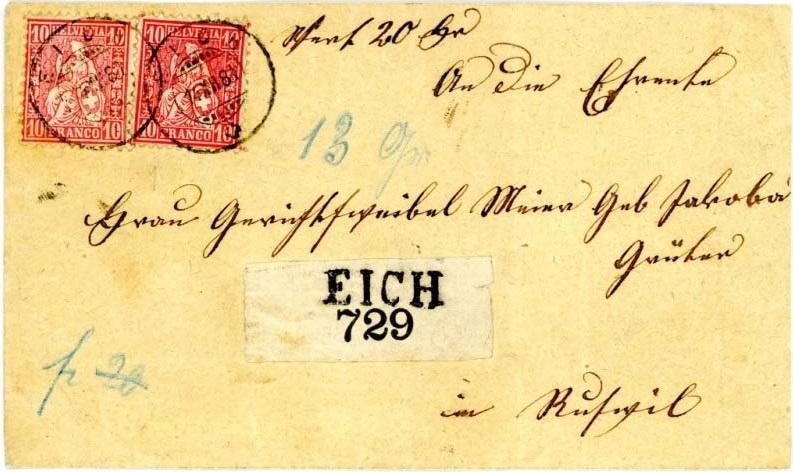 10 HELVETIA 10
10 FRANCO 10
10 HELVETIA 10
10 FRANCO 10
EICH
Wert 20 Fr
An die Ehrente
13 Gr
Frau Gerichtsweibel Meier Geb Jakoba
Grüter
EICH
729
fr 20
in Ruswil